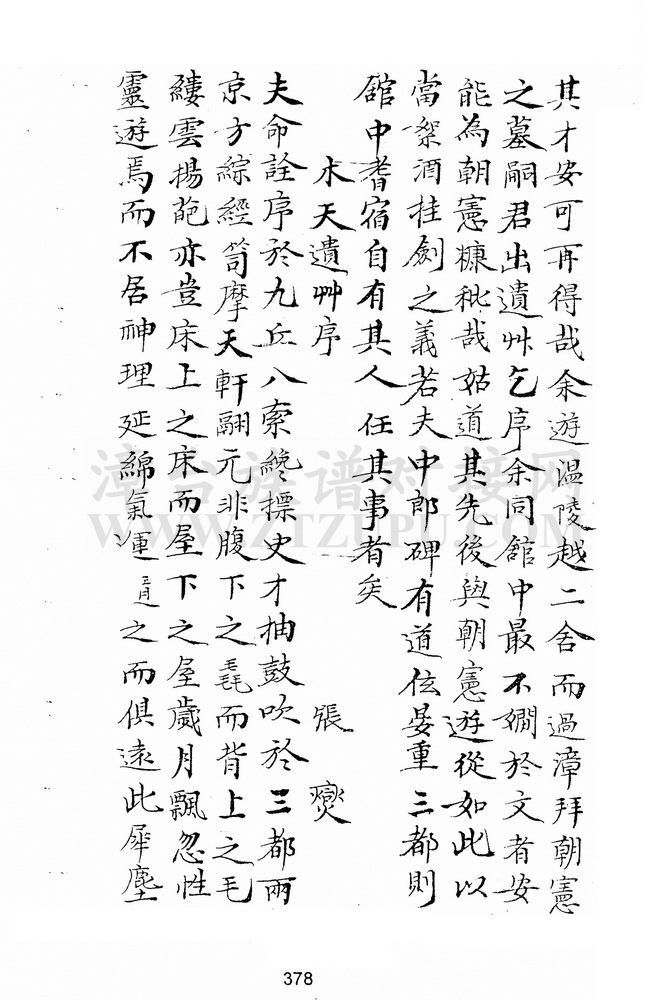 其才安可再得哉余遊溫陵越二舍而過漳拜朝憲
之墓嗣君出遺艸乞序余同館中最不嫺於文者安
能為朝憲糠秕哉姑道其先後與朝憲遊從如此以
當絮酒挂劍之義若夫中郎碑有道伭晏重三都則
館中耆宿自有其人任其事者矣
木天遺艸序
張燮
夫命詮序於九丘八索終摽史才抽鼓吹於三都兩
京方綜經笥摩天軒翮元非腹下之毳而背上之毛
縷雲揚葩亦豈床上之床而屋下之屋歲月飄忽性
靈遊焉而不居神理延綿氣運之而俱遠此犀塵
漳台族谱对接网
WWW.ZTZUPU.COM
378